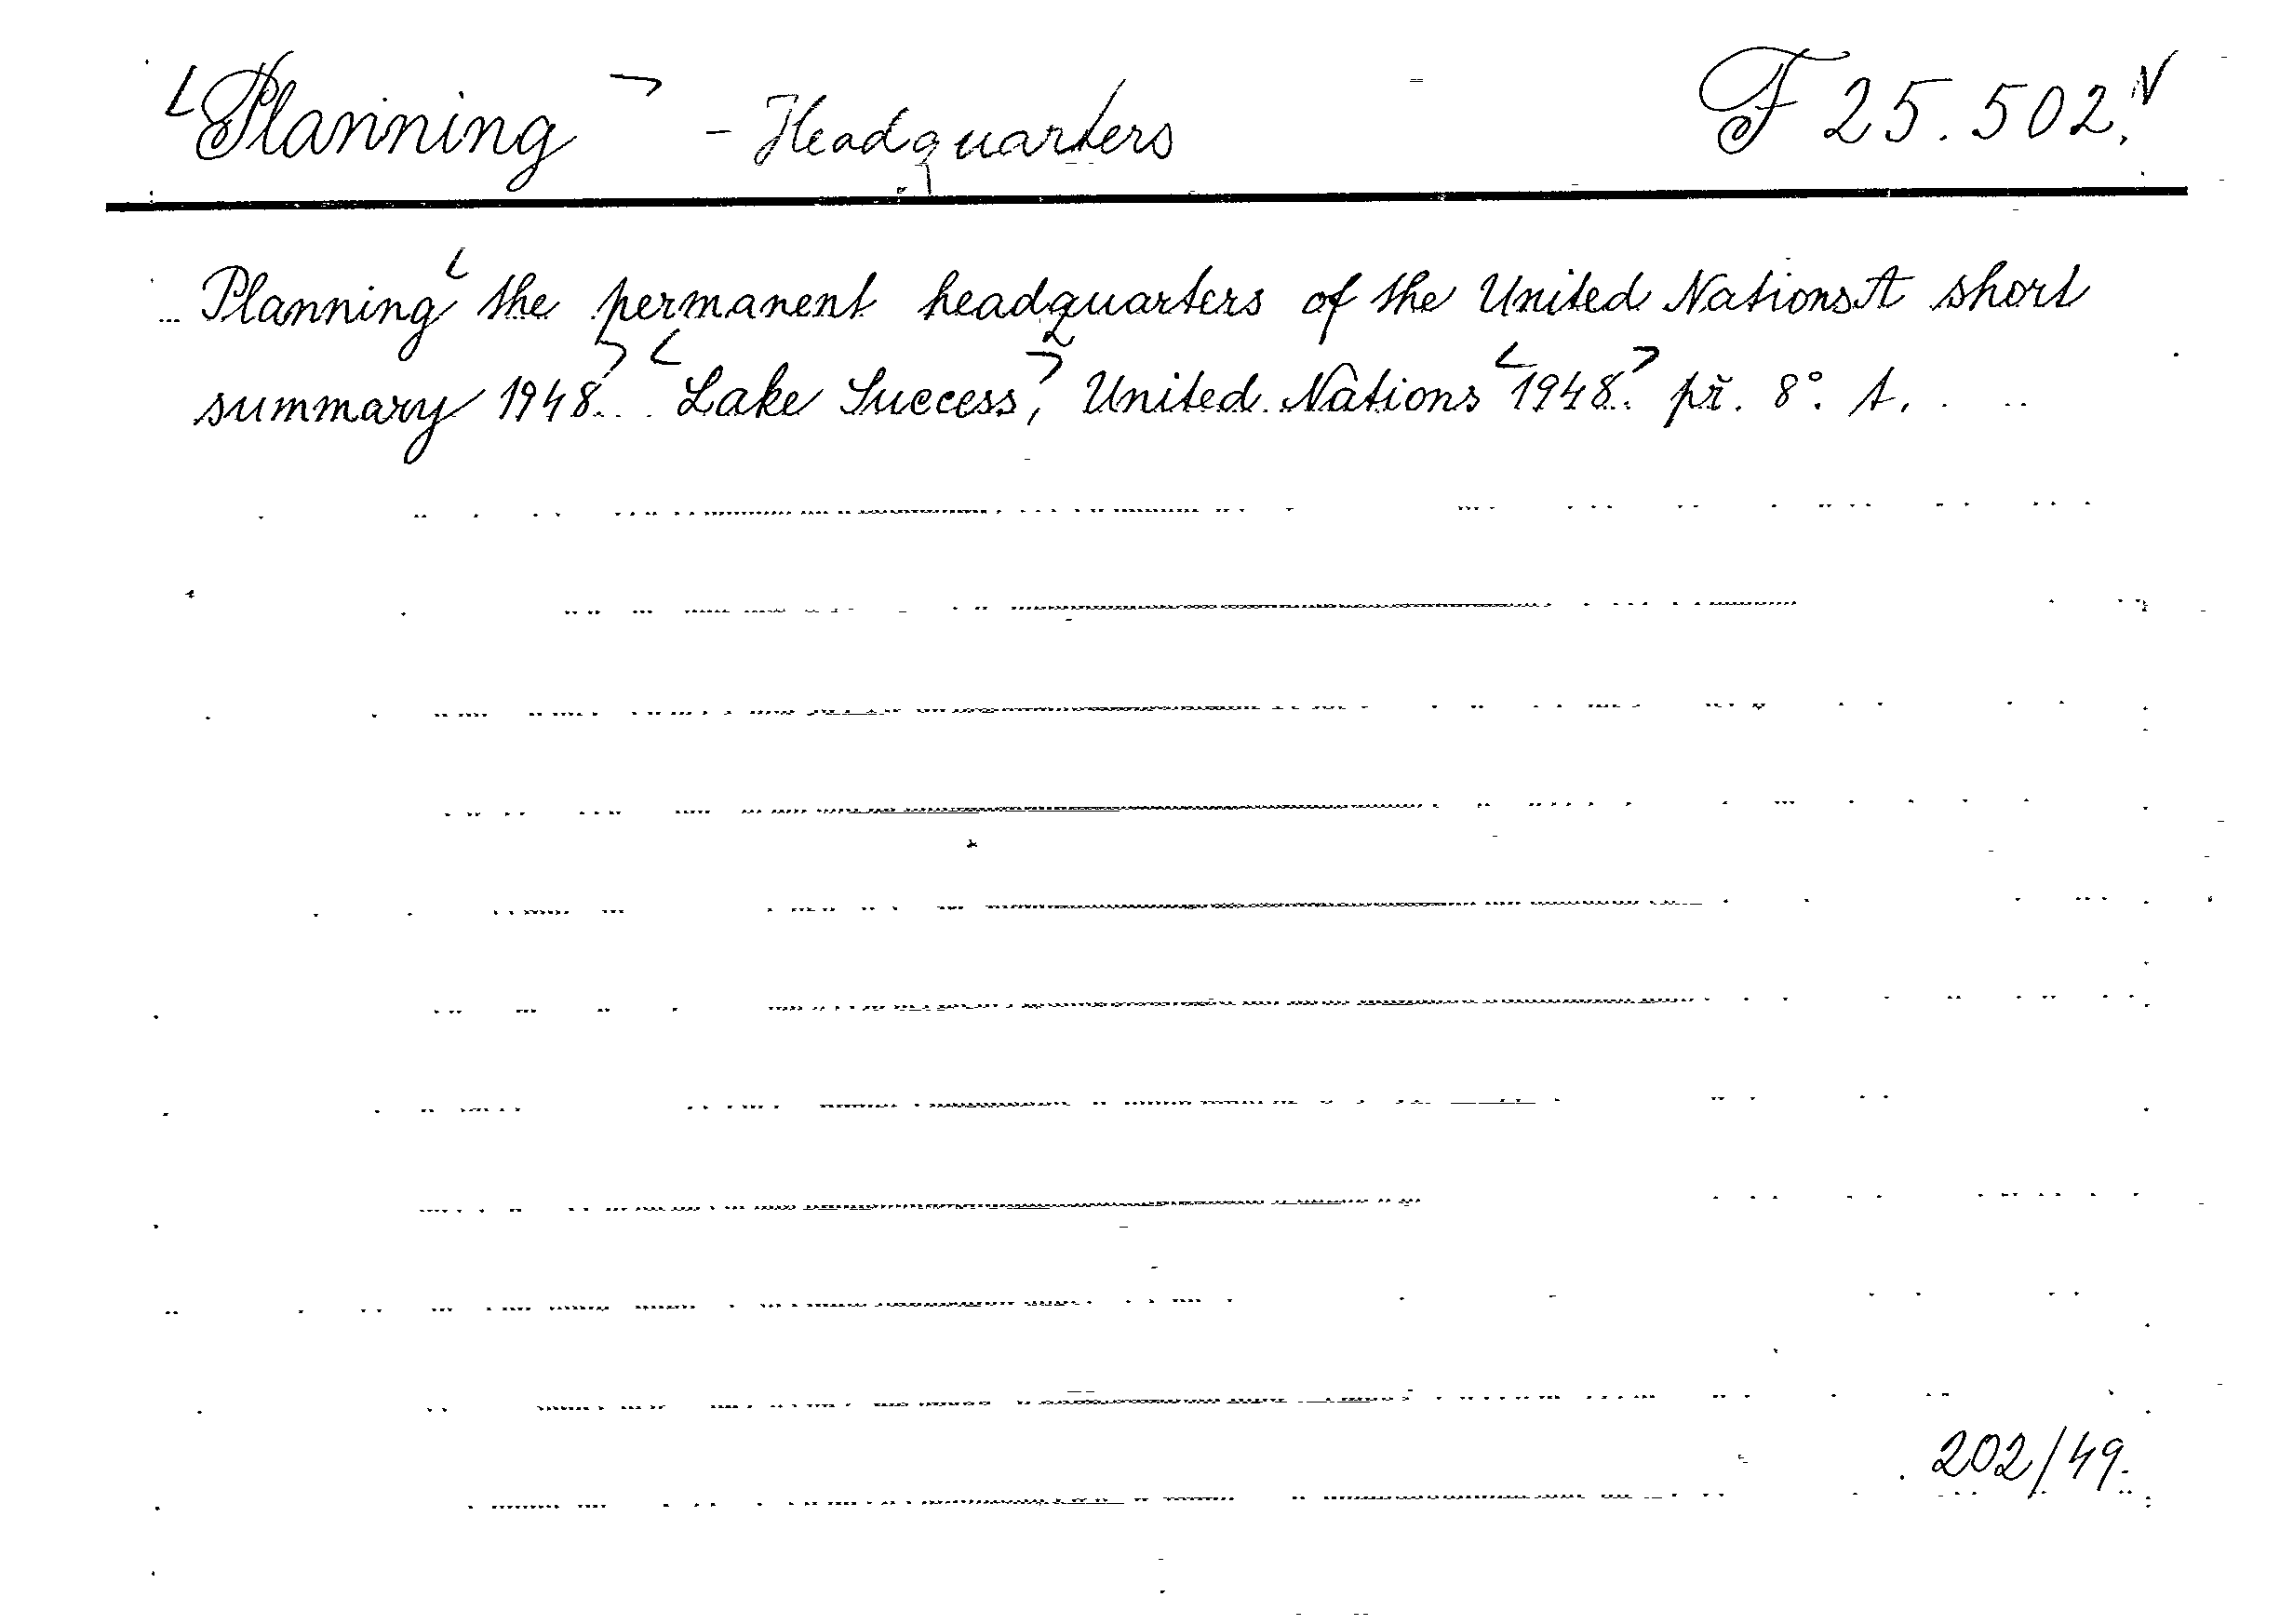 Planning - Headquarters F 25.502.
Planning the permanent headquarters of the United Nations A short
summary 1948. Lake Success, United Nations 1948. př. 8°. A.
202/49.